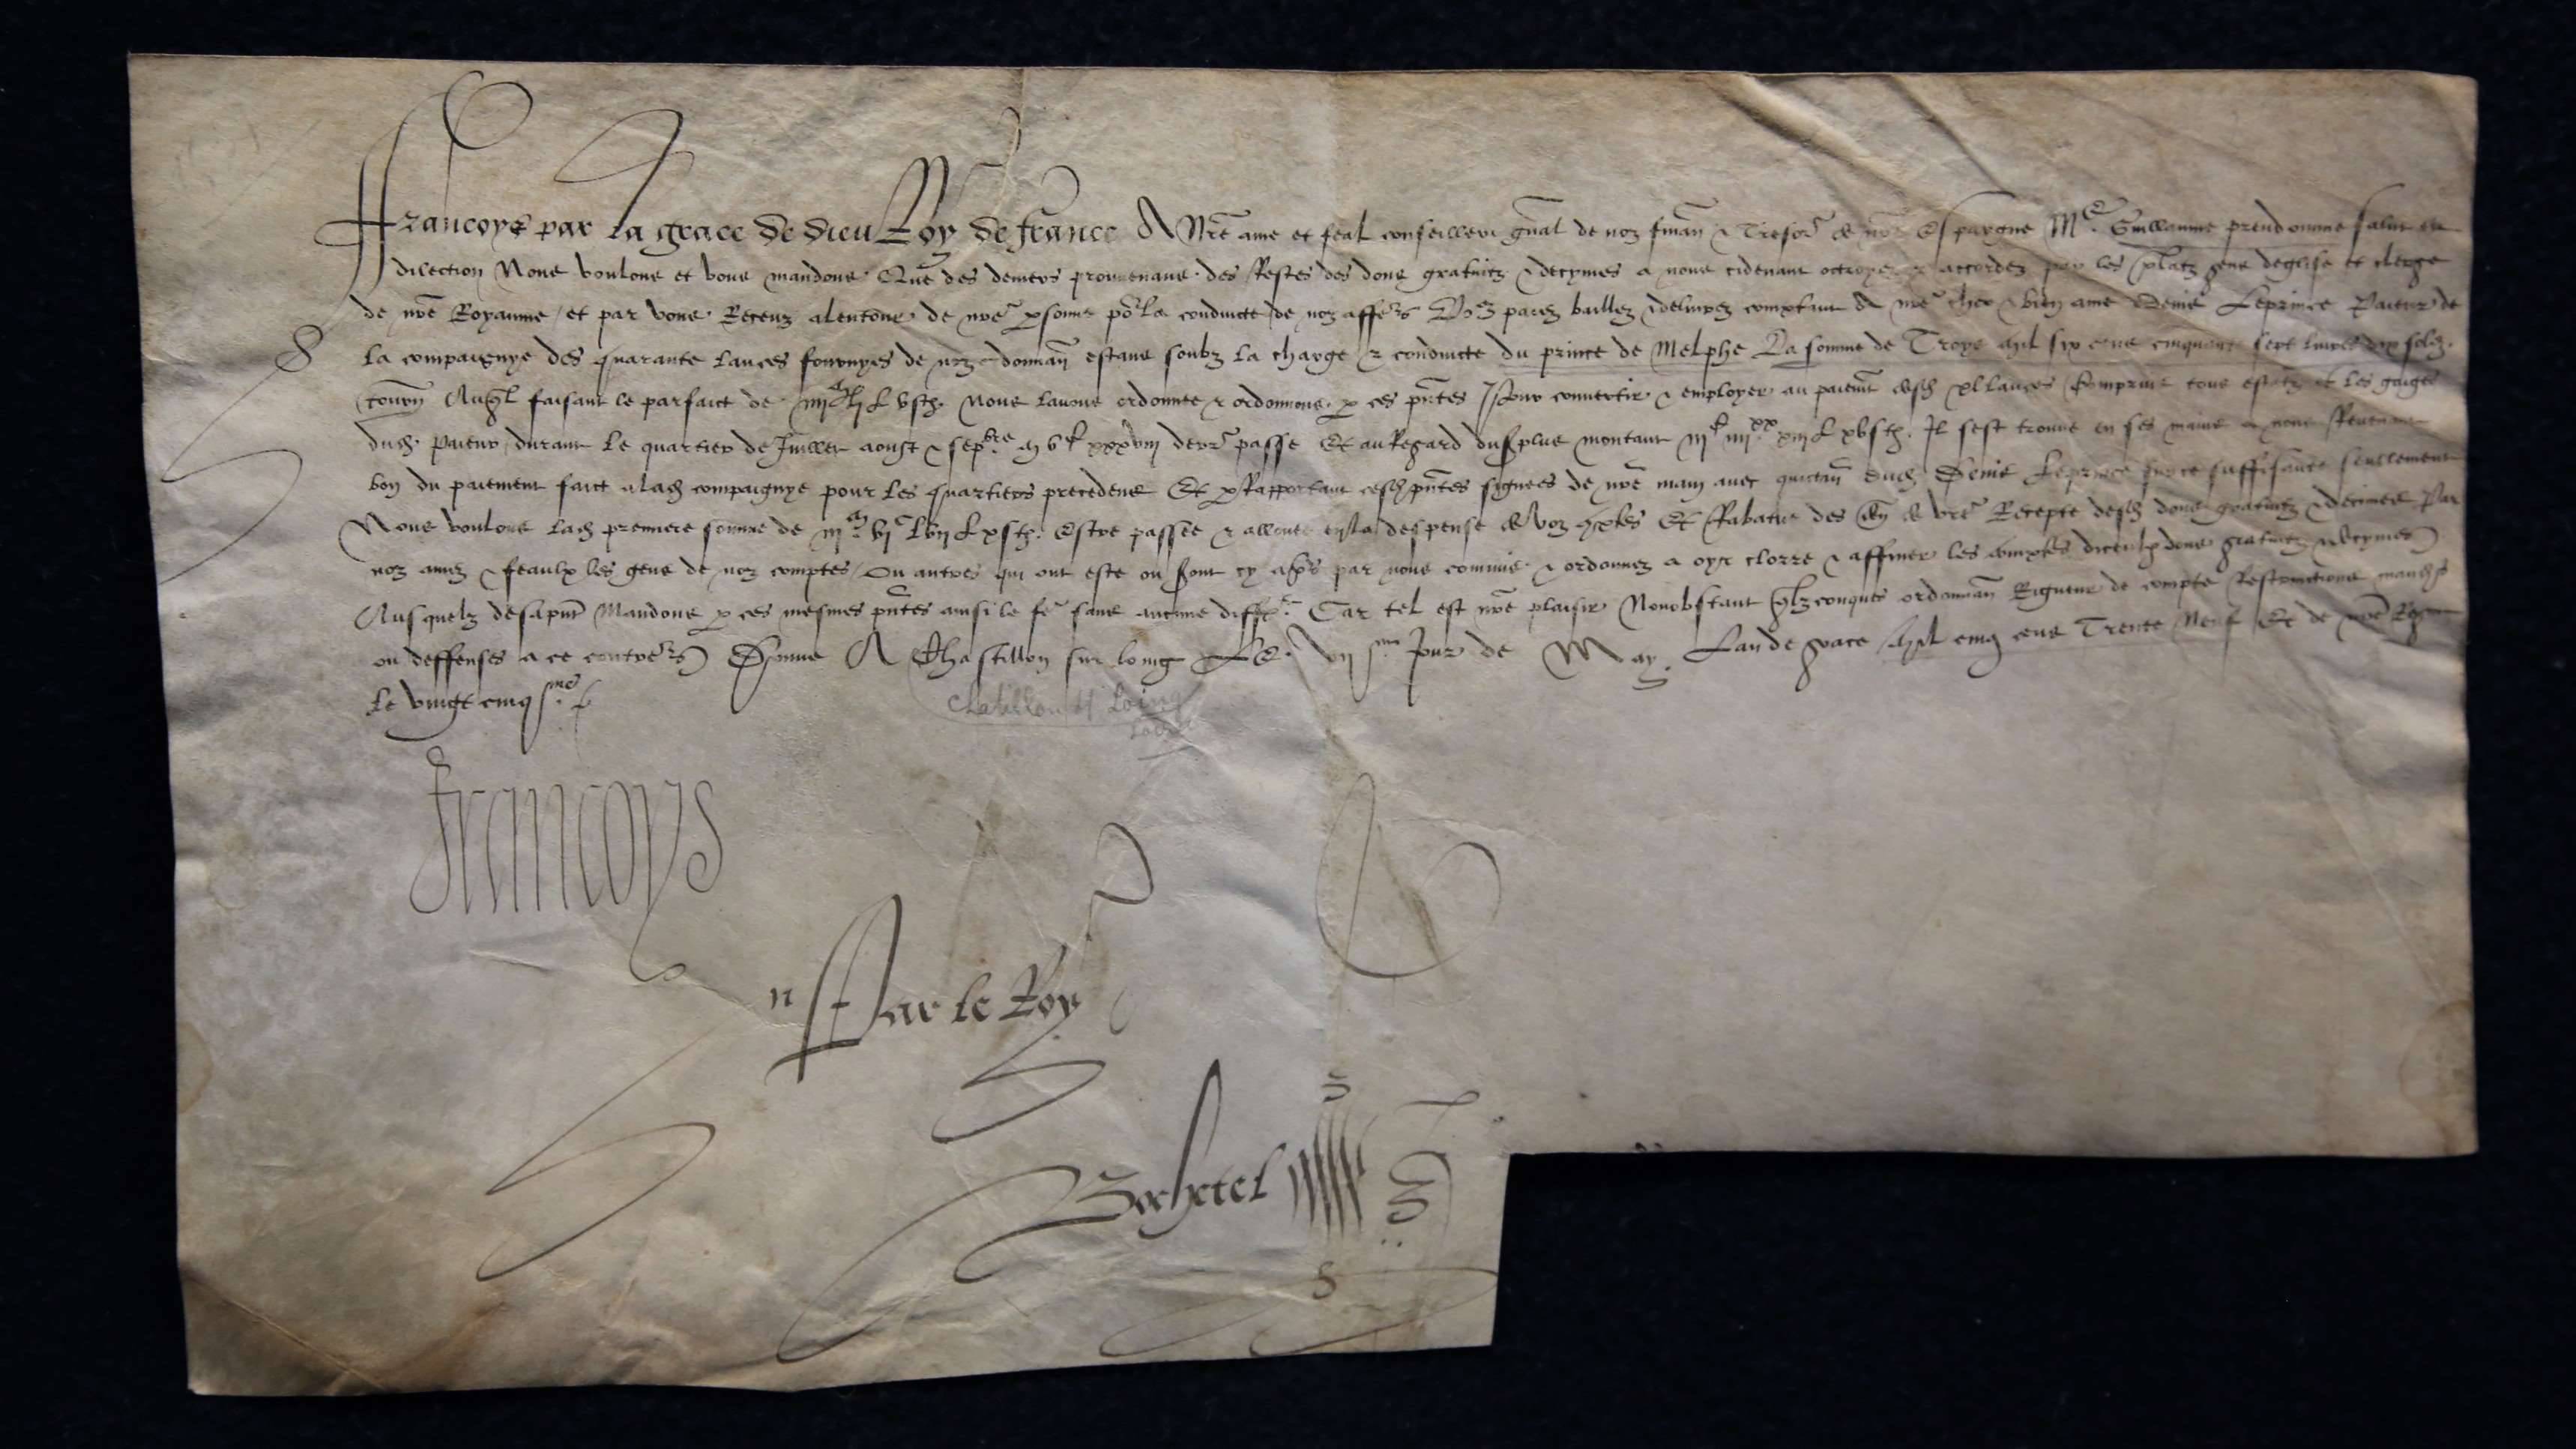 Francoys par la grace de dieu Roy de france A Nre ame et feal conseiller gnal de noz finan & Tresor de nre Espargne Me Guillaume preudomme salut et
dilection Nous voulons et vous mandons Que des deniers provenans des Restes des dons gratuitz & decymes a nous cidevant octroyez & accordez par les prelatz gens deglise et clerge
de nre Royaume et par vous Receuz alentour de nre psonne por la conduicte de noz affres Vo9 paiez baillez & delivrez comptant A nre cher & bien ame Denis Leprince Paieur de
la compaignye des quarante lances fournyes de noz ordonnan estans soubz la charge & conduicte du prince de Melphe La somme de Troys mil six cens cinquante sept livres dix solz
tourn Auql faisant le parfaict de L vsth. Nous lavons ordonnee & ordonnons p ces pntes Pour convertir & employer au paiemt desd xl lances Comprins tous estatz et les gaiges
dud. paieur durant le quartier de Juillet aoust & sepbre m vc xxxviii derr passe Et au Regard du surplus montant iiic iiiixx xiii L xvsth. Il sest trouve en ses mains a nous Revenant
bon du paiement faict a lad compaignye pour les quartiers precedens Et p Rapportant cesd pntes signees de nre main avec quictan dud Denis Leprince sur ce suffisante seullement
Nous voulons lad premiere somme de iiim vic Lvii L xsth. Estre passee & allouee en la despense de voz comptes Et Rabatue des de vre Recepte desd dons gratuitz & decimes Par
noz amez & feaulx les gens de noz comptes ou autres qui ont este ou seront cy apres par nous commis & ordonnez a oyr clorre & affiner les comptes diceulx dons gratuitz & decymes
Ausquelz desapnt Mandons p ces mesmes pntes ainsi le fe sans aucune difficte Car tel est nre plaisir Nonobstant qlzconques ordonnan Rigueur de compte Restrinctions mandem
ou deffenses a ce contrres Donne A Chastillon sur loing Le viisme Jour de May Lan de grace Mil cinq cens Trente Neuf Et de nre Regne
Le vingt cinqsme
Chatillon s/ Loing
Francoys
Par le Roy
Bochetel